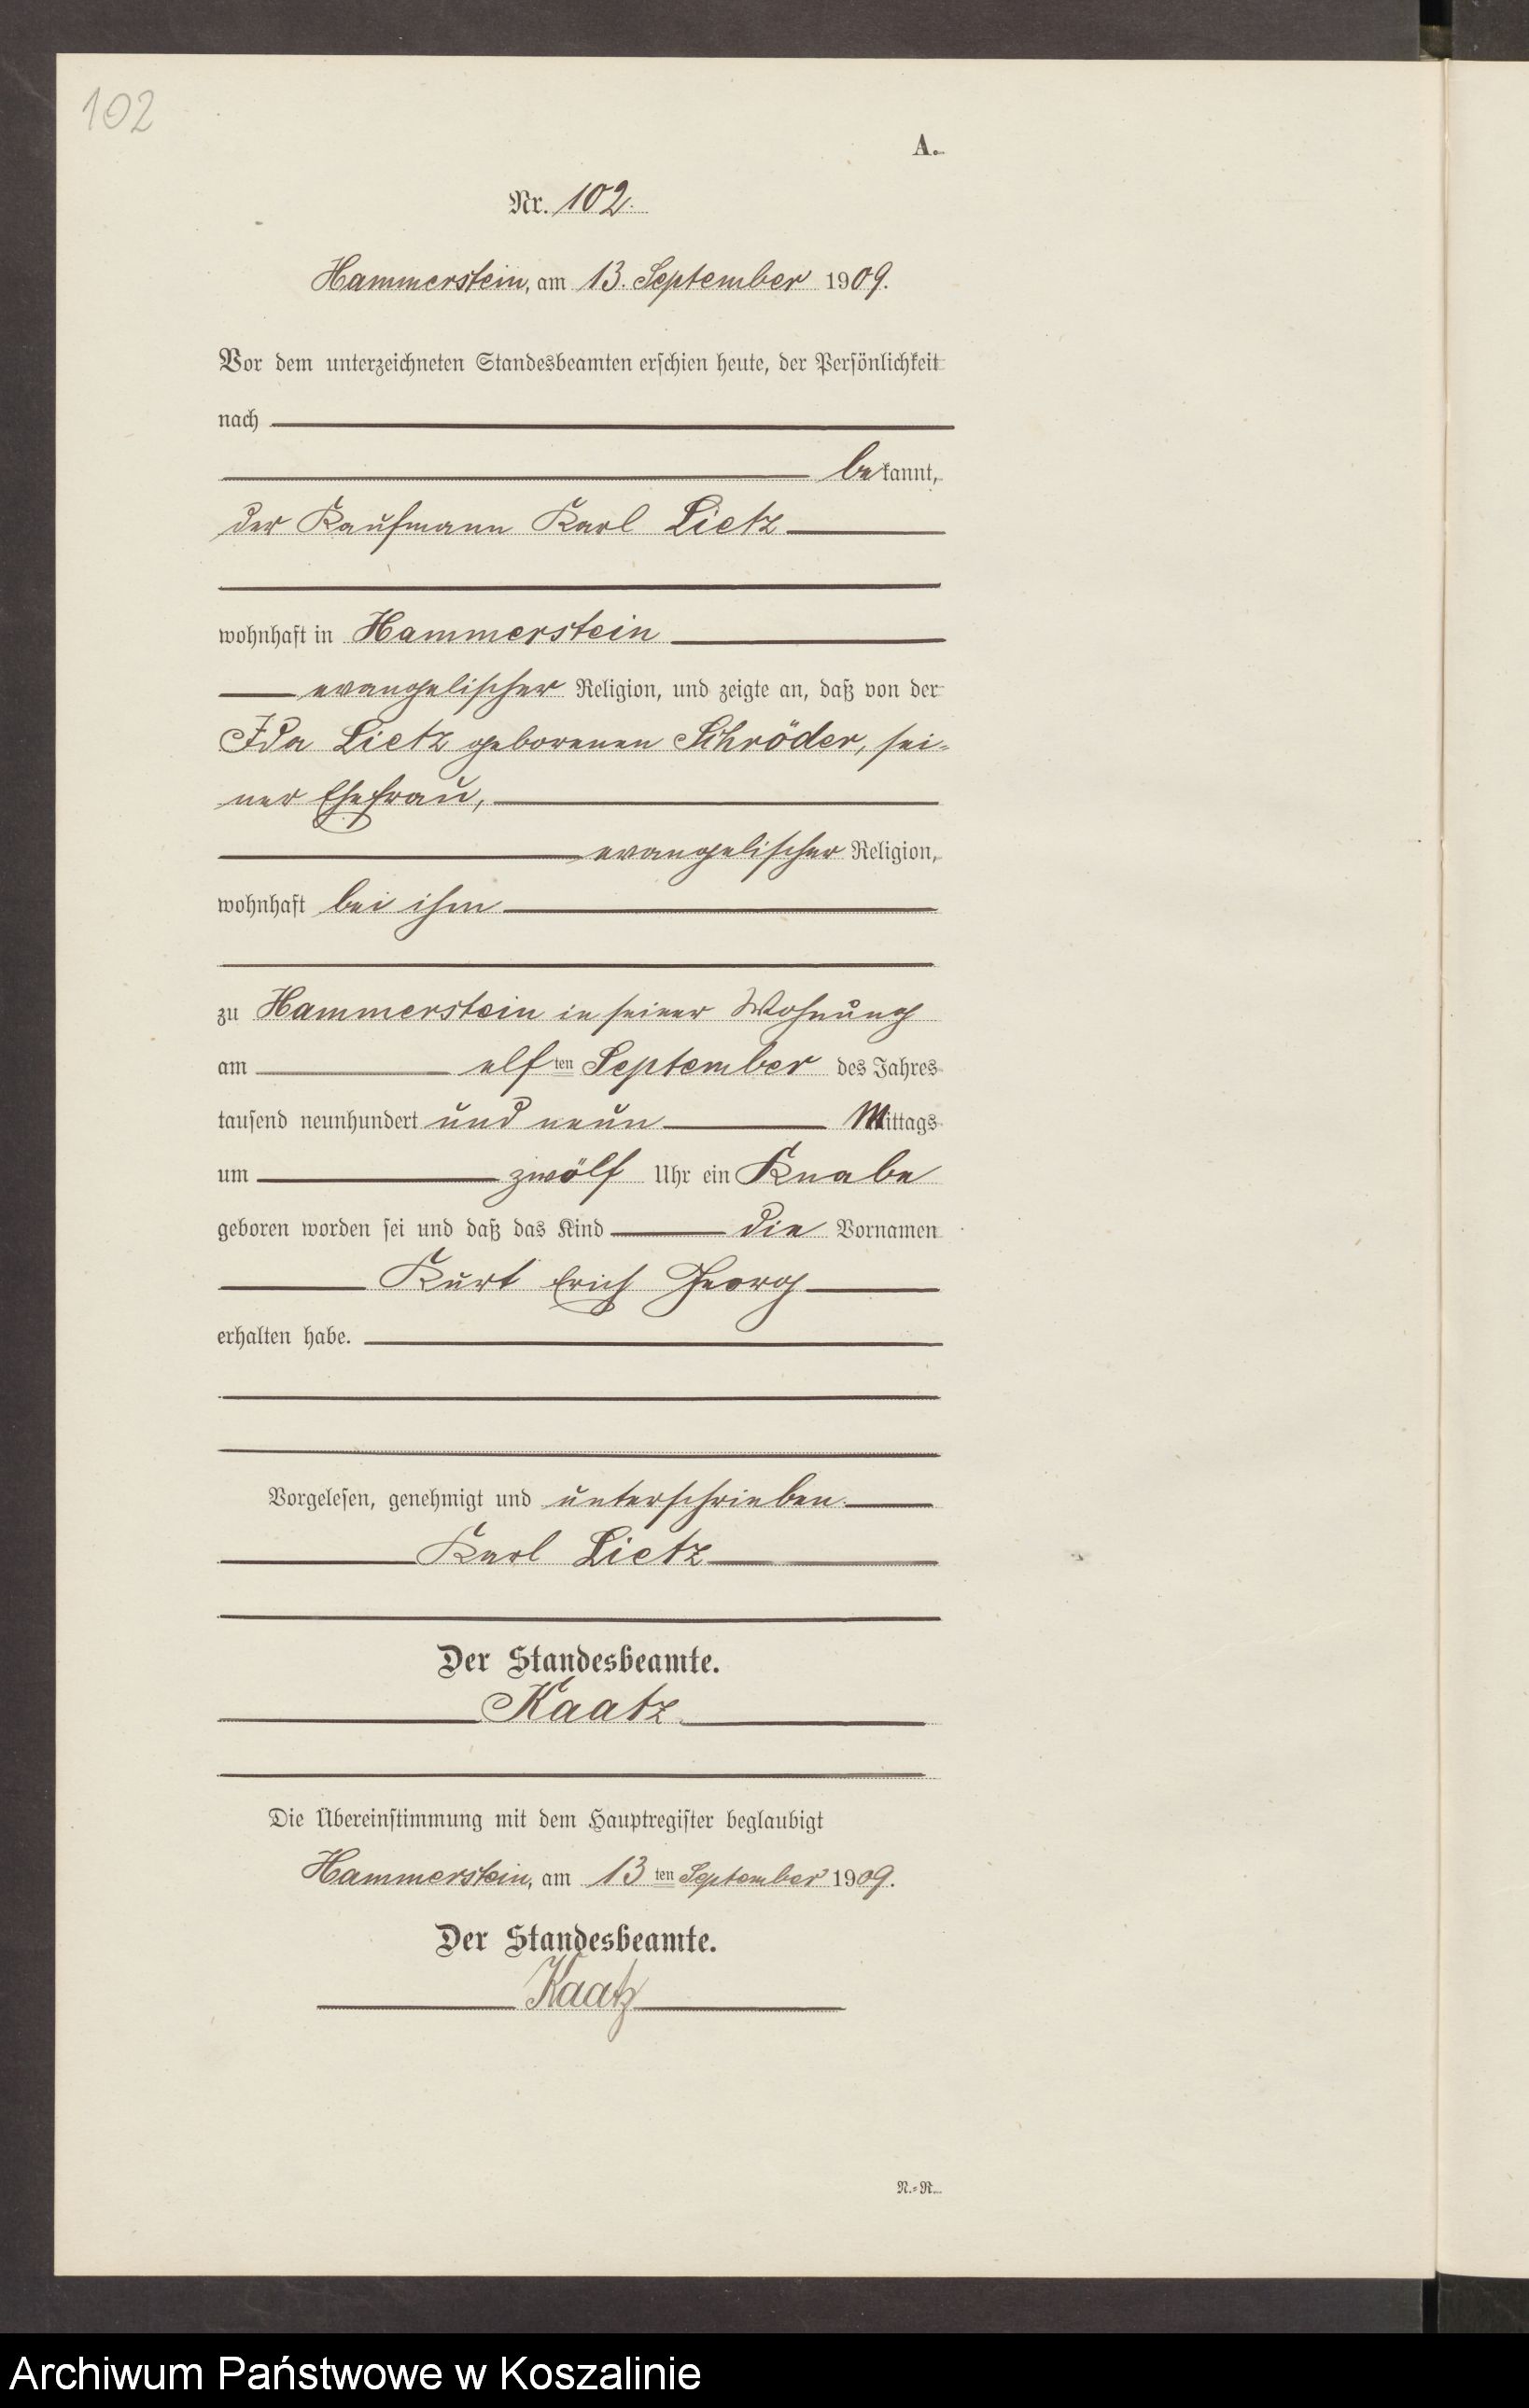 102
A.
Nr. 102.
Hammerstein, am 13. September 1909.
Vor dem unterzeichneten Standesbeamten erschien heute, der Persönlichkeit
nach
bekannt,
der Kaufmann Karl Lietz
wohnhaft in Hammerstein
evangelischer Religion, und zeigte an, daß von der
Ida Lietz geborenen Schröder, sei-
ner Ehefrau,
evangelischer Religion,
wohnhaft bei ihm
zu Hammerstein in seiner Wohnung
am elf ten September des Jahres
tausend neunhundert und neun Mittags
um zwölf Uhr ein Knabe
geboren worden sei und daß das Kind die Vornamen
Kurt Erich Georg
erhalten habe.
Vorgelesen, genehmigt und unterschrieben.
Karl Lietz
Der Standesbeamte.
Kaatz
Die Übereinstimmung mit dem Hauptregister beglaubigt
Hammerstein, am 13 ten September 1909.
Der Standesbeamte.
Kaatz
N.-R.
Archiwum Państwowe w Koszalinie